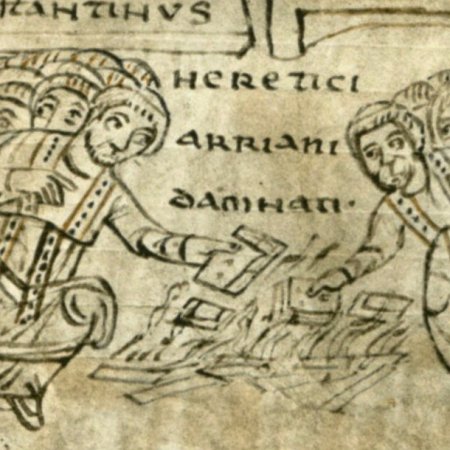 TANTINUS
HERETICI
ARRIANI
DAMNATI·